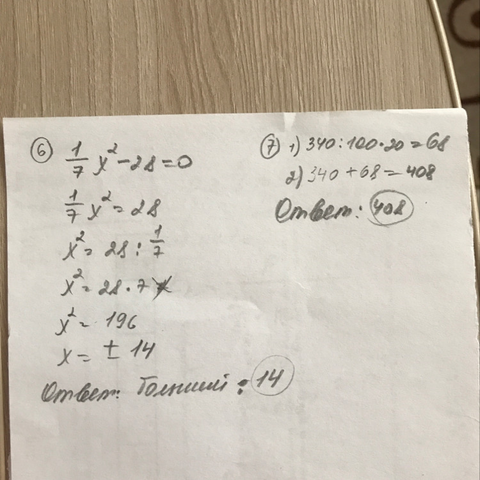 6
1/7 x² - 28 = 0
1/7 x² = 28
x² = 28 : 1/7
x² = 28 · 7
x² = 196
x = ± 14
Ответ: больший : 14
7 1) 340 : 100 · 20 = 68
2) 340 + 68 = 408
Ответ: 408